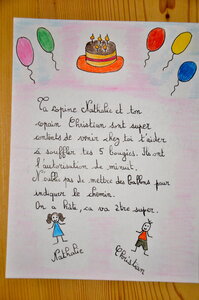 Ta copine Nathalie et ton
copain Christian sont super
contents de venir chez toi t'aider
à souffler tes 5 bougies. Ils ont
l'autorisation de minuit.
N'oublie pas de mettre des ballons pour
indiquer le chemin.
On a hâte, ça va être super.
Nathalie
Christian